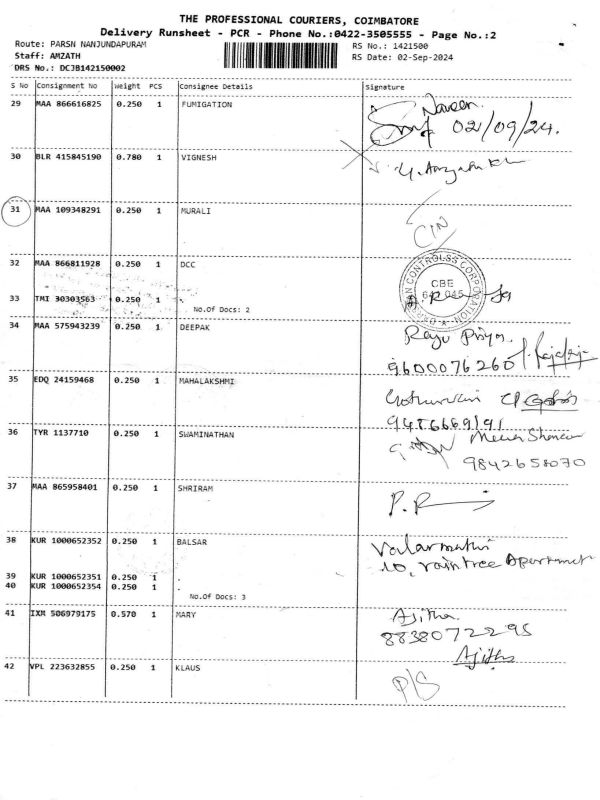 THE PROFESSIONAL COURIERS, COIMBATORE
Delivery Runsheet - PCR - Phone No.:0422-3505555 - Page No.:2
Route: PARSN NANJUNDAPURAM RS No.: 1421500
Staff: AMZATH RS Date: 02-Sep-2024
DRS No.: DCJB142150002
S No Consignment No Weight PCS Consignee Details Signature
29 MAA 866616825 0.250 1 FUMIGATION Naveen
02/09/24.
30 BLR 415845190 0.780 1 VIGNESH
31 MAA 109348291 0.250 1 MURALI
C/N
32 MAA 866811928 0.250 1 DCC
CONTROLSS CORPORATION
CBE
33 TMI 30303563 0.250 1 .
No.Of Docs: 2
34 MAA 575943239 0.250 1 DEEPAK Raju Priya
9600076260
35 EDQ 24159468 0.250 1 MAHALAKSHMI
9486669191
36 TYR 1137710 0.250 1 SWAMINATHAN
9842658070
37 MAA 865958401 0.250 1 SHRIRAM P.R
38 KUR 1000652352 0.250 1 BALSAR Valarmathi
10, raintree Apartment
39 KUR 1000652351 0.250 1 .
40 KUR 1000652354 0.250 1 .
No.Of Docs: 3
41 IXM 506979175 0.570 1 MARY Ajitha
8838072295
Ajitha
42 VPL 223632855 0.250 1 KLAUS
P/S